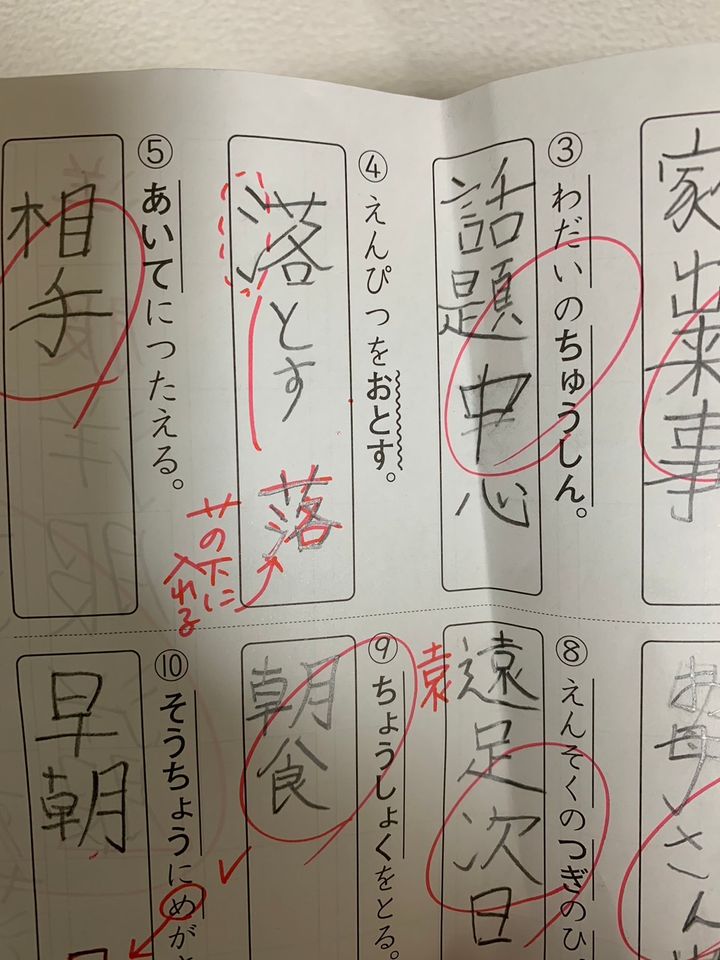 家出来事
③ わだいのちゅうしん。
話題中心
④ えんぴつをおとす。
落とす
落
艹の下に
入れる
⑤ あいてにつたえる。
相手
お母さん
⑧ えんそくのつぎのひ。
遠足次日
袁
⑨ ちょうしょくをとる。
朝食
⑩ そうちょうにめが
早朝